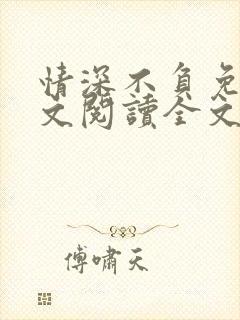 情深不負免
文閱讀全文
傅嘯天